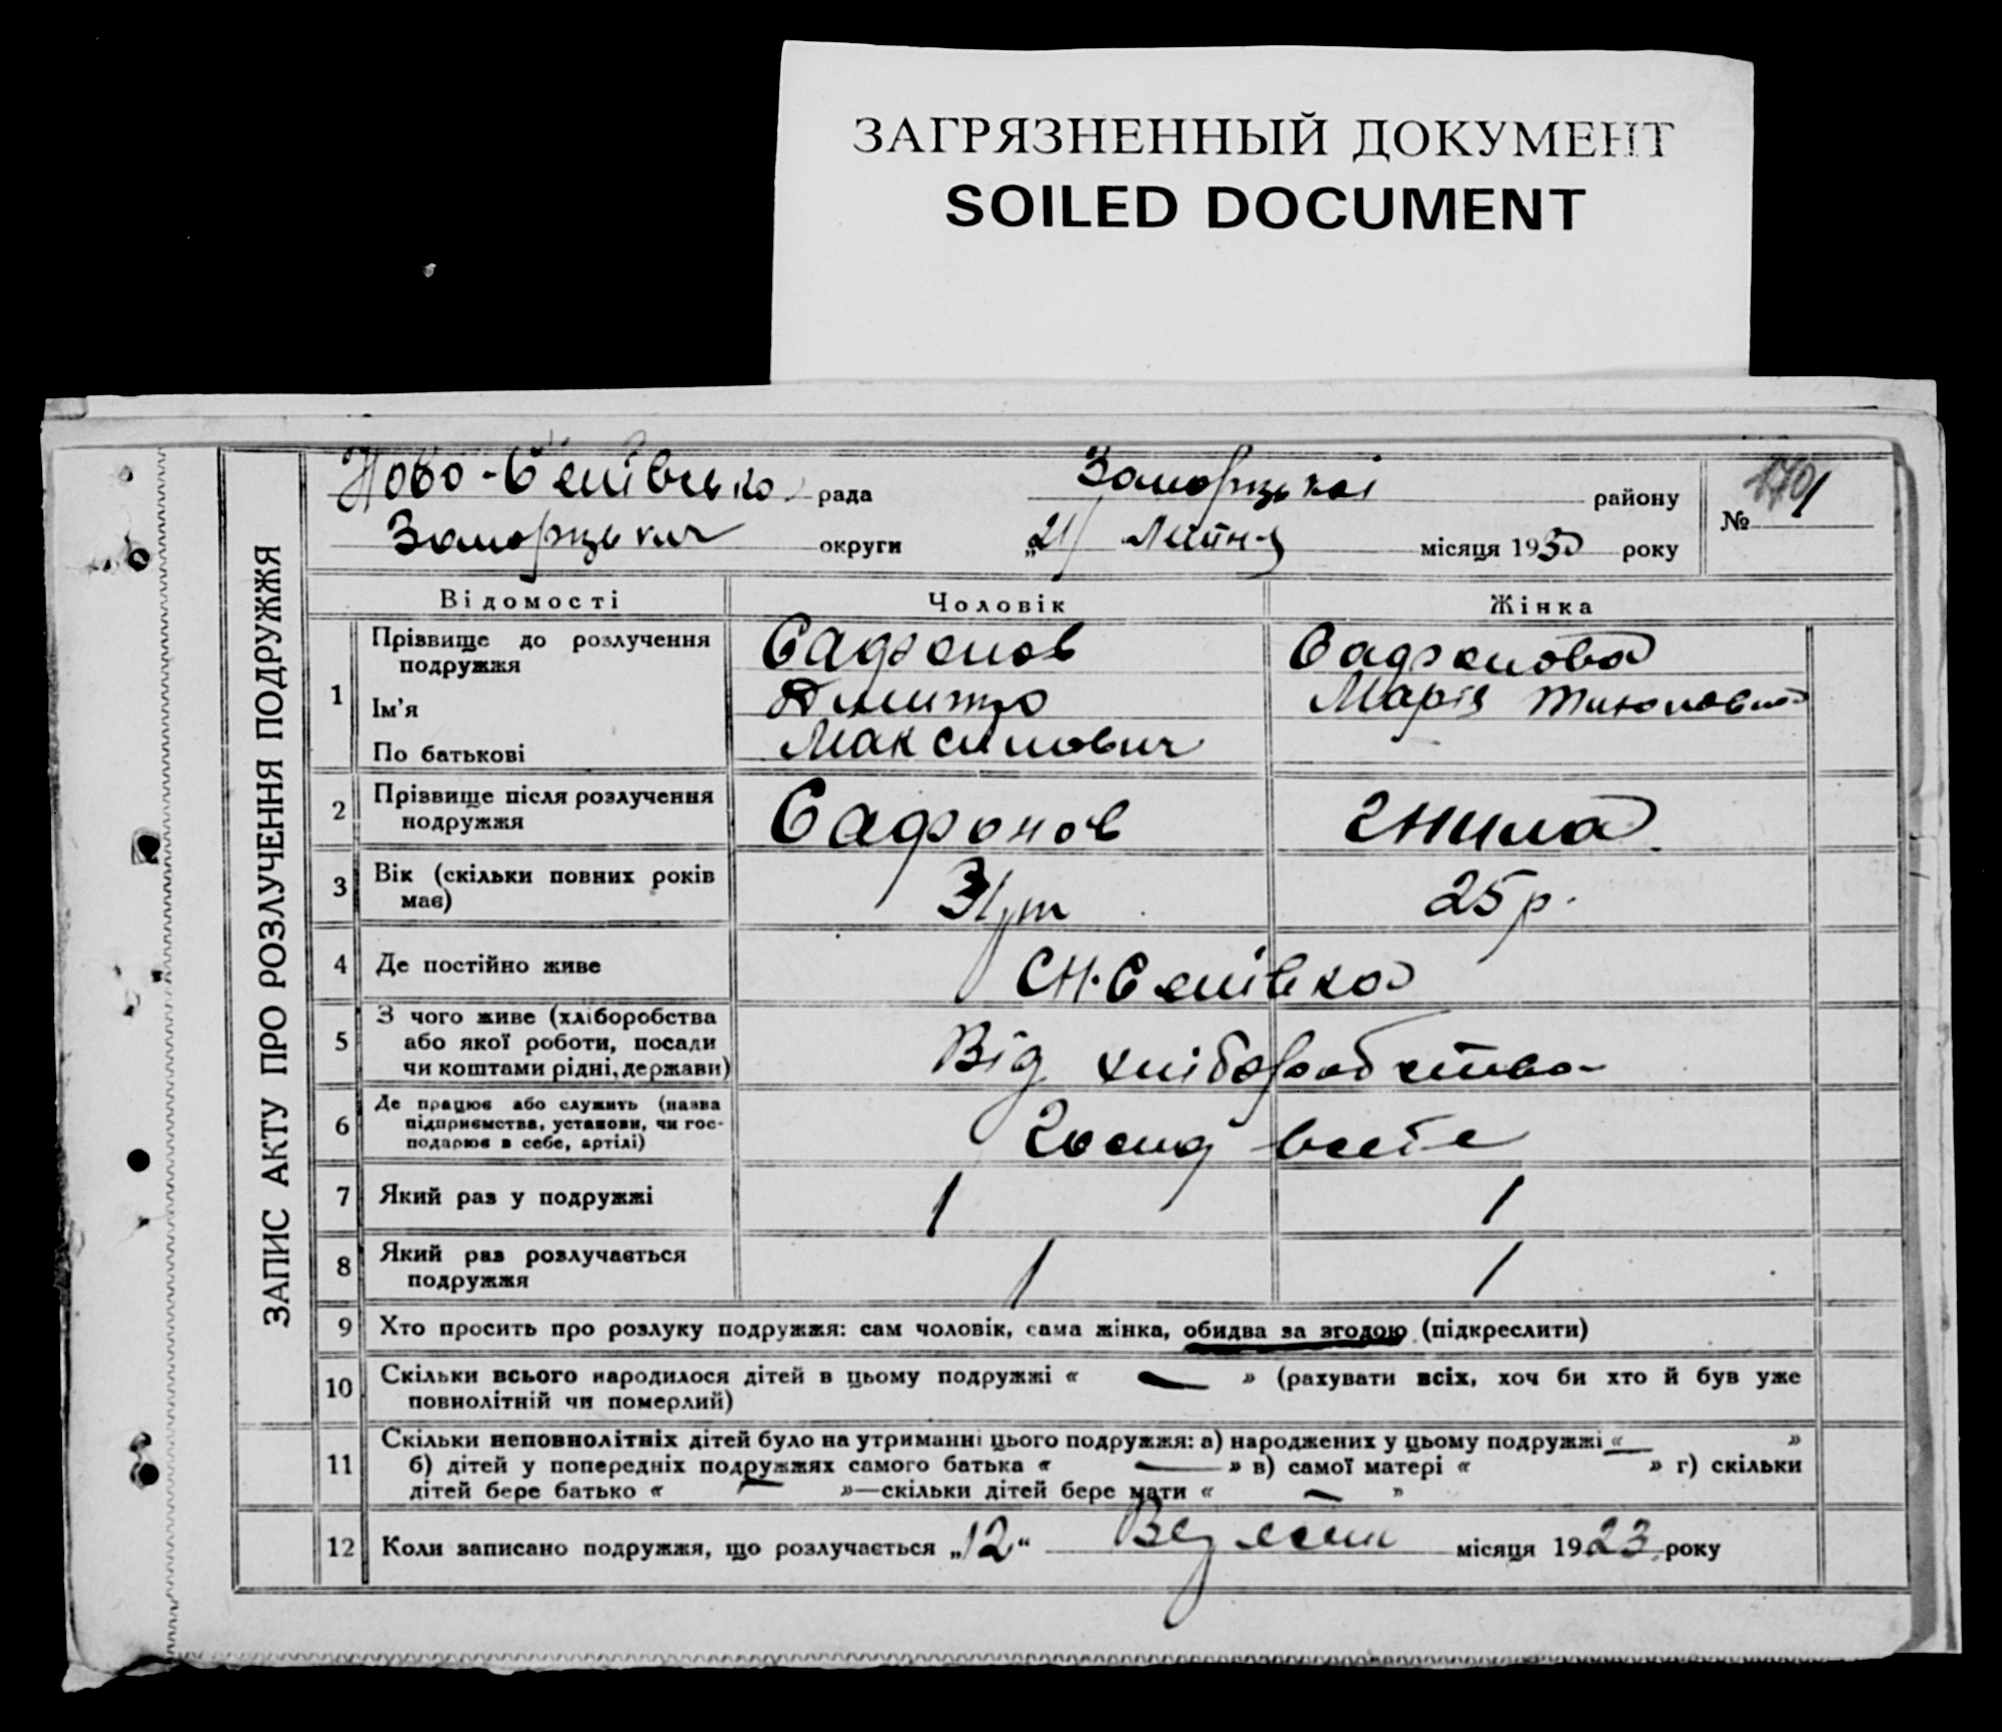 ЗАГРЯЗНЕННЫЙ ДОКУМЕНТ
SOILED DOCUMENT
ЗАПИС АКТУ ПРО РОЗЛУЧЕННЯ ПОДРУЖЖЯ
рада району
№
округи „21 місяця 1930 року
Відомості Чоловік Жінка
1 Прізвище до розлучення подружжя Сафонов Сафонова
Ім'я Дмитро Марія
По батькові Максимович
2 Прізвище після розлучення подружжя Сафонов Гнила
3 Вік (скільки повних років має) 31 25 р.
4 Де постійно живе
5 З чого живе (хліборобства або якої роботи, посади чи коштами рідні, держави) Від хліборобства
6 Де працює або служить (назва підприємства, установи, чи господарює в себе, артілі)
7 Який раз у подружжі 1 1
8 Який раз розлучається подружжя 1 1
9 Хто просить про розлуку подружжя: сам чоловік, сама жінка, обидва за згодою (підкреслити)
10 Скільки всього народилося дітей в цьому подружжі « — » (рахувати всіх, хоч би хто й був уже
повнолітній чи померлий)
11 Скільки неповнолітніх дітей було на утриманні цього подружжя: а) народжених у цьому подружжі « — »
б) дітей у попередніх подружжях самого батька « — » в) самої матері « » г) скільки
дітей бере батько « — »—скільки дітей бере мати « — »
12 Коли записано подружжя, що розлучається „12“ місяця 1923 року